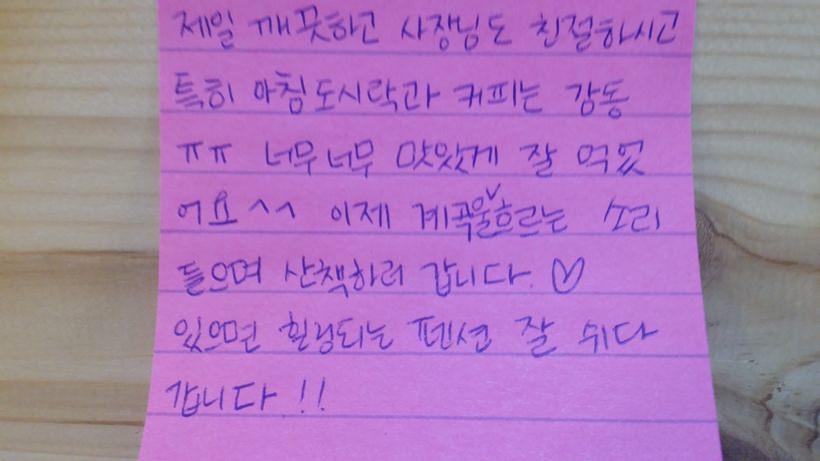 제일 깨끗하고 사장님도 친절하시고
특히 아침도시락과 커피는 감동
ㅠㅠ 너무너무 맛있게 잘 먹었
어요^^ 이제 계곡물흐르는 소리
들으며 산책하러 갑니다. ♡
있으면 힐링되는 펜션 잘 쉬다
갑니다!!